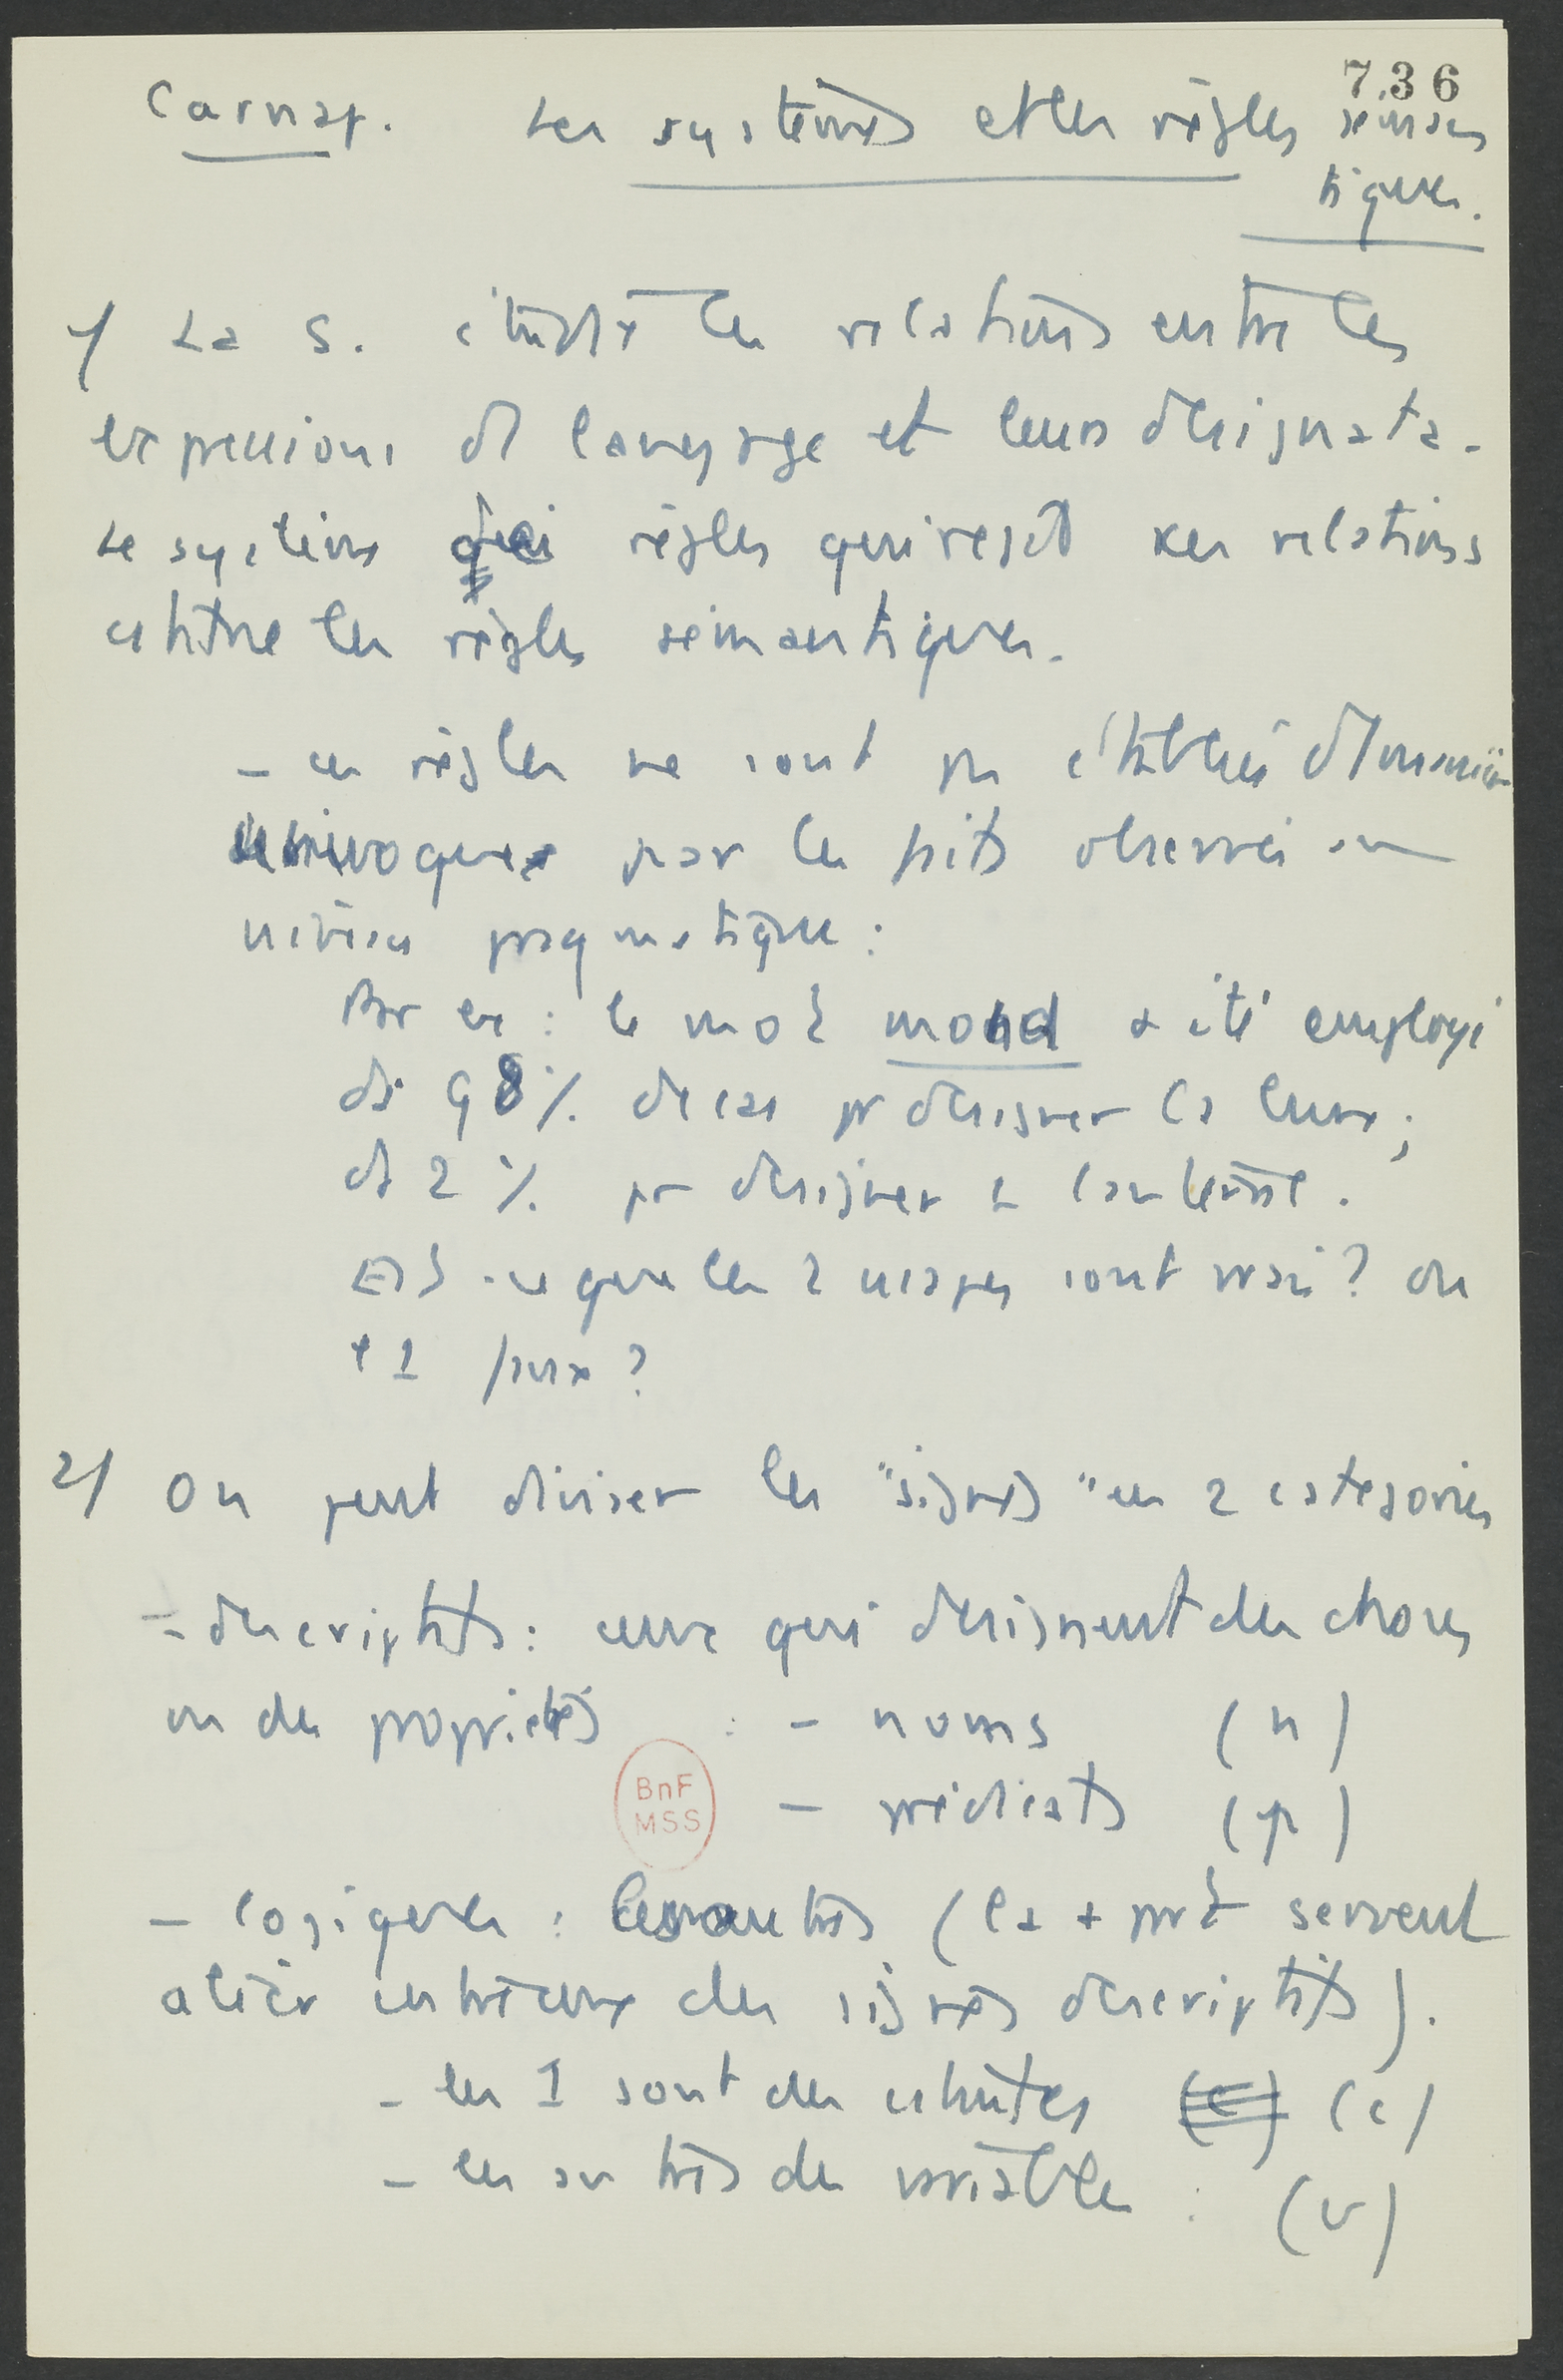 736
Carnap. Les systèmes et les règles séman
tiques.
1/ La S. étudie les relations entre les
expressions du langage et leurs designata.
Le système des règles qui régit ces relations
constitue les règles sémantiques.
– ces règles ne sont pas établies d'1 manière
univoque par les faits observés au
niveau pragmatique :
Par ex : le mot mond a été employé
ds 98% des cas pr désigner la lune ;
ds 2 % pr désigner 1 lanterne.
Est-ce que les 2 usages sont vrais ? ou
1 faux ?
2/ On peut diviser les "signes" en 2 catégories
– descriptifs : ceux qui désignent des choses
ou des propriétés : – noms (n)
BnF
MSS
– prédicats (p)
– logiques : les autres (la + part servent
à lier entre eux des signes descriptifs).
– les 1 sont des cstantes (c) (c)
– les autres des variables : (v)